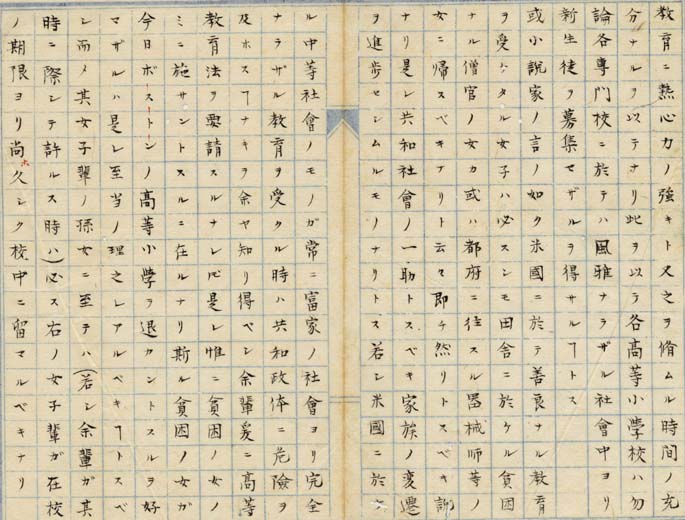 教育ニ熱心力ノ強キト又之ヲ脩ムル時間ノ充
分ナルヲ以テナリ此ヲ以テ各高等小學校ハ勿
論各専門校ニ於テハ風雅ナラザル社會中ヨリ
新生徒ヲ募集セザルヲ得サルヿトス
或小説家ノ言ノ如ク米國ニ於テ善良ナル教育
ヲ受ケタル女子ハ必スシモ田舎ニ於ケル貧困
ナル僧官ノ女カ或ハ都府ニ住スル噐械師等ノ
女ニ帰スベキナリト云々即チ然リトスベキ訳
ナリ是レ共和社會ノ一助トスベキ家族ノ変遷
ヲ進歩セシムルモノナリトス若シ米國ニ於ケ
ル中等社會ノモノガ常ニ富家ノ社會ヨリ完全
ナラザル教育ヲ受クル時ハ共和政体ニ危險ヲ
及ホスヿナキヲ余ヤ知リ得ベシ余輩爰ニ高等
教育法ヲ要請スルナレ𪜈是レ惟ニ貧困ノ女ノ
ミニ施サントスルニ在ルナリ斯ル貧困ノ女ガ
今日ボーストーンノ高等小學ヲ退カントスルヲ好
マザルハ是レ至当ノ理之レアルベキヿトスベ
シ而メ其女子輩ノ孫女ニ至テハ(若シ余輩ガ其
時ニ際シテ許ルス時ハ)必ス右ノ女子輩ガ在校
ノ期限ヨリ尚ホ久シク校中ニ留マルベキナリ